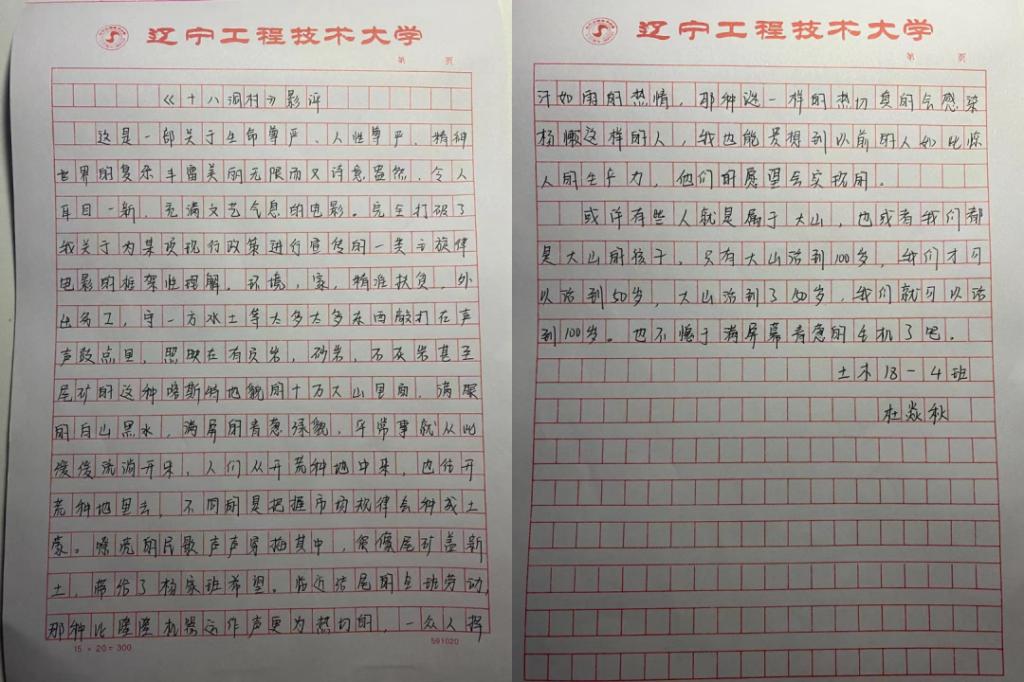 辽宁工程技术大学
第 页
《十八洞村》影评
这是一部关于生命尊严、人性尊严、精神
世界的复杂丰富美丽无限而又诗意盎然、令人
耳目一新、充满文艺气息的电影。完全打破了
我关于为某项执行政策进行宣传的一类主旋律
电影的框架性理解。环境,家,精准扶贫,外
出务工,守一方水土等太多太多东西敲打在声
声鼓点里,照映在有页岩,砂岩,石灰岩甚至
尾矿的这种喀斯特地貌的十万大山里面,满架
的白山黑水,满屏的青葱绿貌,平常事就从此
缓缓流淌开来,人们从开荒种地中来,也往开
荒种地里去,不同的是把握市场规律会种或土
豪。嘹亮的民歌声声穿插其中,
尾矿盖新
土,带给了杨家班希望。临近结尾的全班劳动,
那种比隆隆机器运作声更为热切的,一众人挥
15×20=300
591020
辽宁工程技术大学
第 页
汗如雨的热情,那种迷一样的热切真的会感染
杨懒这样的人,我也能畏想到以前的人如此惊
人的生产力,他们的愿望会实现的。
或许有些人就是属于大山,也或者我们都
是大山的孩子,只有大山活到100岁,我们才可
以活到50岁,大山活到了50岁,我们就可以活
到100岁。也不愧于满屏幕青葱的生机了吧。
土木18-4班
杜焱秋